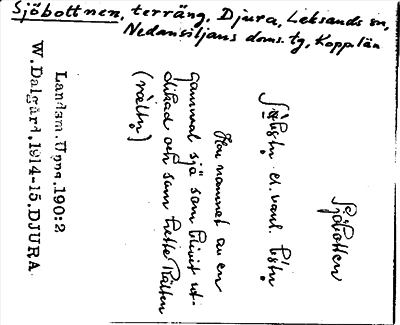 Sjöbottnen, terräng, Djura, Leksands sn,
Nedansiljans doms. tg, Kopp. län
Sjöbotten
el. vanl.
Har namnet av en
gammal sjö som blivit ut-
dikad och som hette Rälten
Landsm. Upps. 190:2
W. Dalgård. 1914-15. DJURA